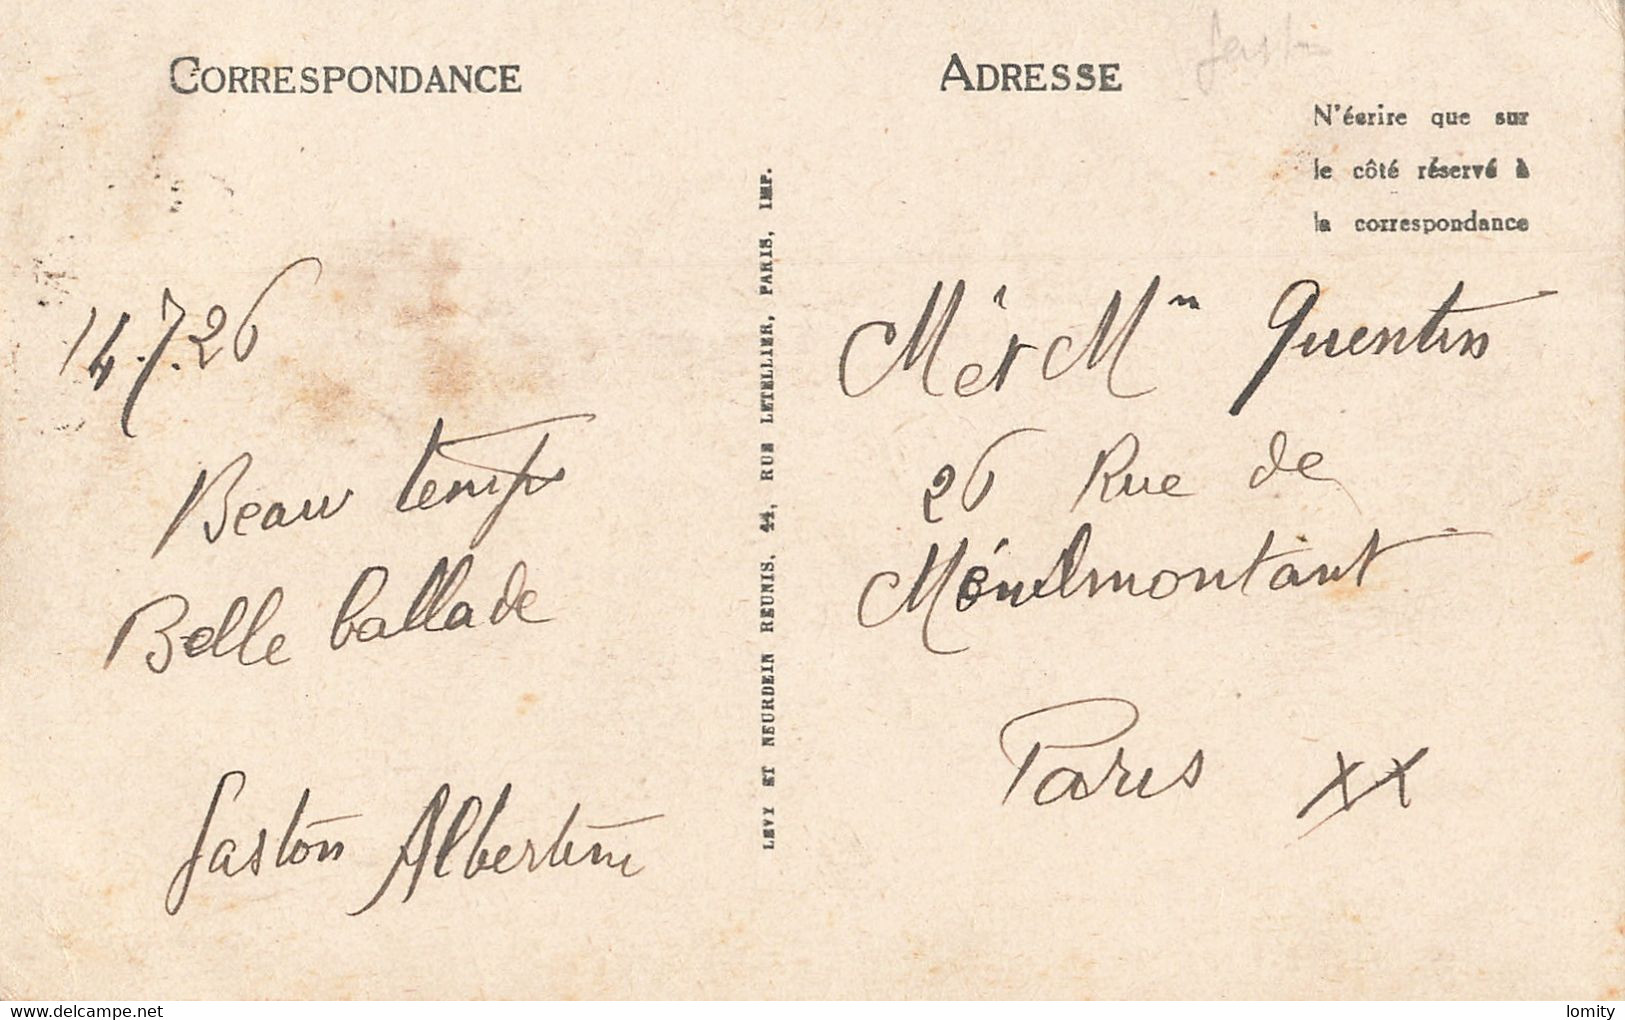 CORRESPONDANCE
14.7.26
Beau temps
Belle ballade
Gaston Albertine
LEVY ET NEURDEIN REUNIS, 44, RUE LETELLIER, PARIS, IMP.
ADRESSE
N'écrire que sur
le côté réservé à
la correspondance
Mr et Mm Quentin
26 Rue de
Ménilmontant
Paris XX
delcampe.net
lomity